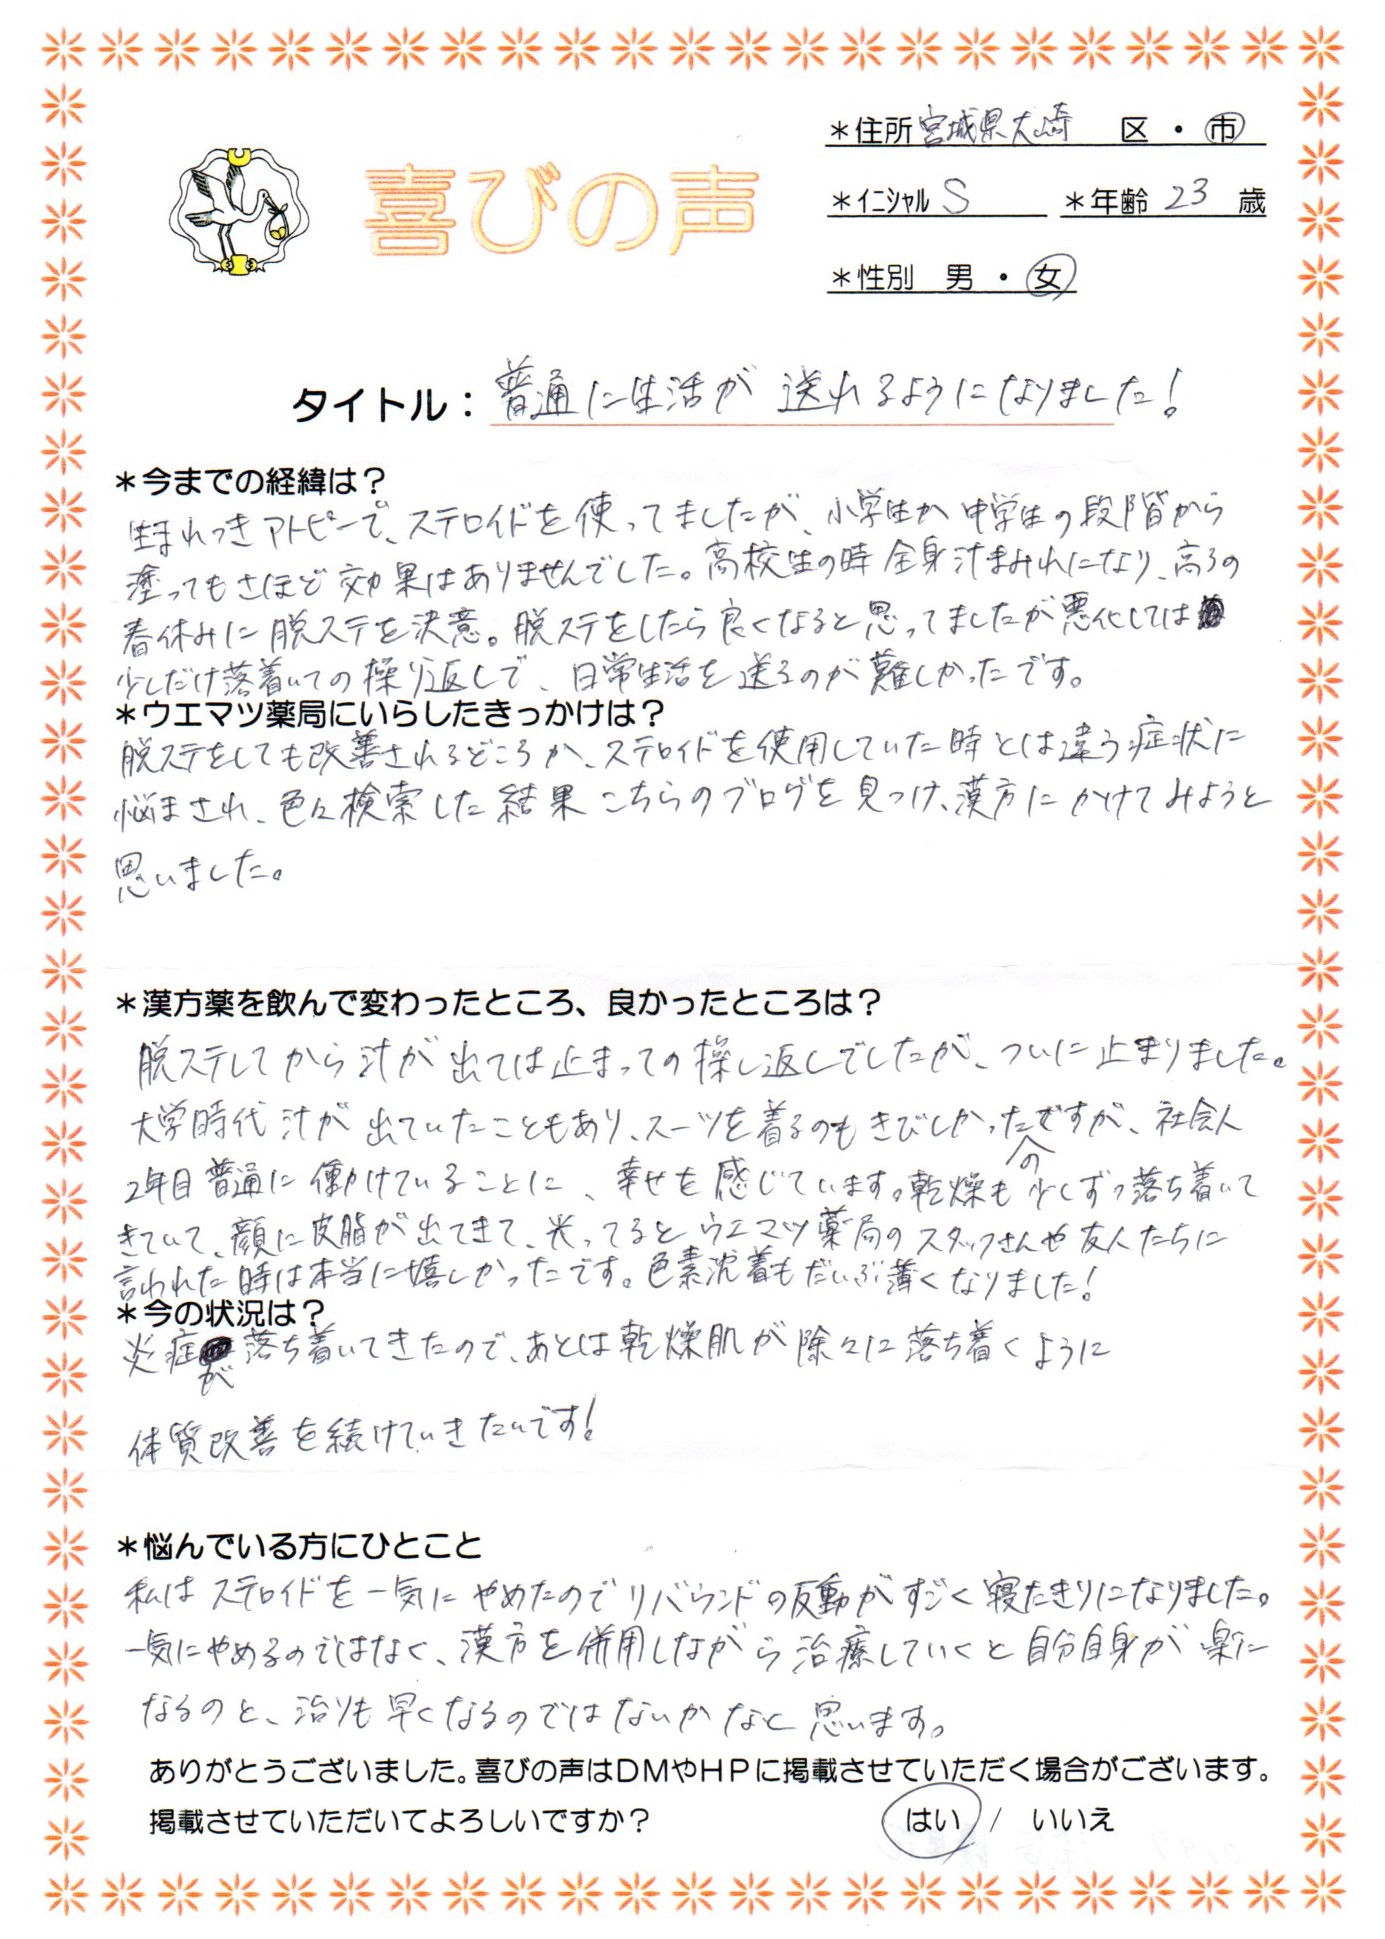 ＊住所 宮城県大崎 区・市
喜びの声
＊イニシャル S ＊年齢 23 歳
＊性別 男・女
タイトル：普通に生活が送れるようになりました！
＊今までの経緯は？
生まれつきアトピーで、ステロイドを使ってましたが、小学生か中学生の段階から
塗ってもさほど効果はありませんでした。高校生の時全身汁まみれになり、高3の
春休みに脱ステを決意。脱ステをしたら良くなると思ってましたが悪化しては
少しだけ落着いての操り返しで、日常生活を送るのが難しかったです。
＊ウエマツ薬局にいらしたきっかけは？
脱ステをしても改善されるどころか、ステロイドを使用していた時とは違う症状に
悩まされ、色々検索した結果こちらのブログを見つけ、漢方にかけてみようと
思いました。
＊漢方薬を飲んで変わったところ、良かったところは？
脱ステしてから汁が出ては止まっての操し返しでしたが、ついに止まりました。
大学時代汁が出ていたこともあり、スーツを着るのもきびしかったのですが、社会人
2年目普通に働けていることに、幸せを感じています。乾燥も少しずつ落ち着いて
きていて、顔に皮脂が出てきて、光ってるとウエマツ薬局のスタッフさんや友人たちに
言われた時は本当に嬉しかったです。色素沈着もだいぶ薄くなりました！
＊今の状況は？
炎症が落ち着いてきたので、あとは乾燥肌が除々に落ち着くように
体質改善を続けていきたいです！
＊悩んでいる方にひとこと
私はステロイドを一気にやめたのでリバウンドの反動がすごく寝たきりになりました。
一気にやめるのではなく、漢方を併用しながら治療していくと自分自身が楽に
なるのと、治りも早くなるのではないかなと思います。
ありがとうございました。喜びの声はDMやHPに掲載させていただく場合がございます。
掲載させていただいてよろしいですか？ はい / いいえ